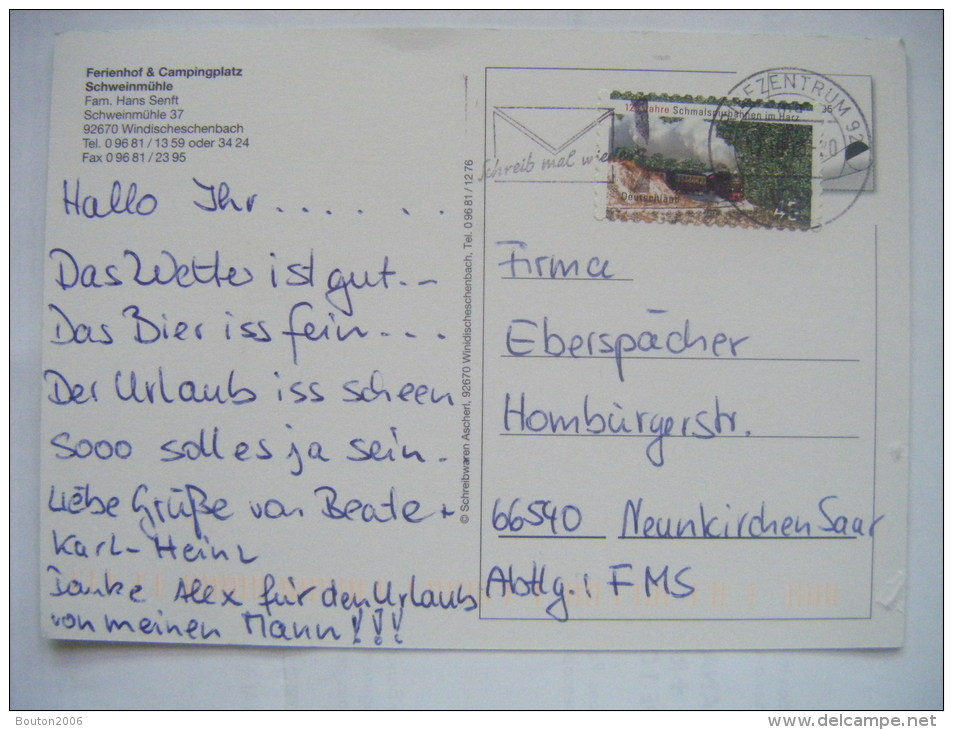 Ferienhof & Campingplatz
Schweinmühle
Fam. Hans Senft
Schweinmühle 37
92670 Windischeschenbach
Tel. 0 96 81 / 13 59 oder 34 24
Fax 0 96 81 / 23 95
Hallo Ihr . . . . . .
Das Wetter ist gut . –
Das Bier iss fein . . .
Der Urlaub iss scheen
sooo soll es ja sein .
Liebe Grüße von Beate +
Karl-Heinz
Danke Alex für den Urlaub
von meinen Mann !!!
© Schreibwaren Ascherl, 92670 Winidischeschenbach, Tel. 0 96 81 / 12 76
Schreib mal wieder
EFZENTRUM 92
Jahre Schmalspurbahnen im Harz
Deutschland
45
Firma
Eberspächer
Homburgerstr.
66540 Neunkirchen Saar
Abtlg.: FMS
Bouton2006
www.delcampe.net